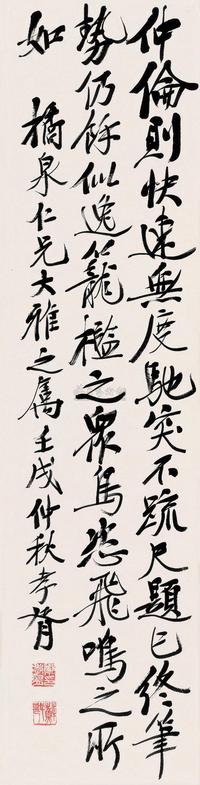 仲倫則快速無度馳突不疏尺題已終筆
勢仍餘似逸籠檻之眾鳥恣飛鳴之所
如 橘泉仁兄大雅之屬壬戌仲秋孝胥